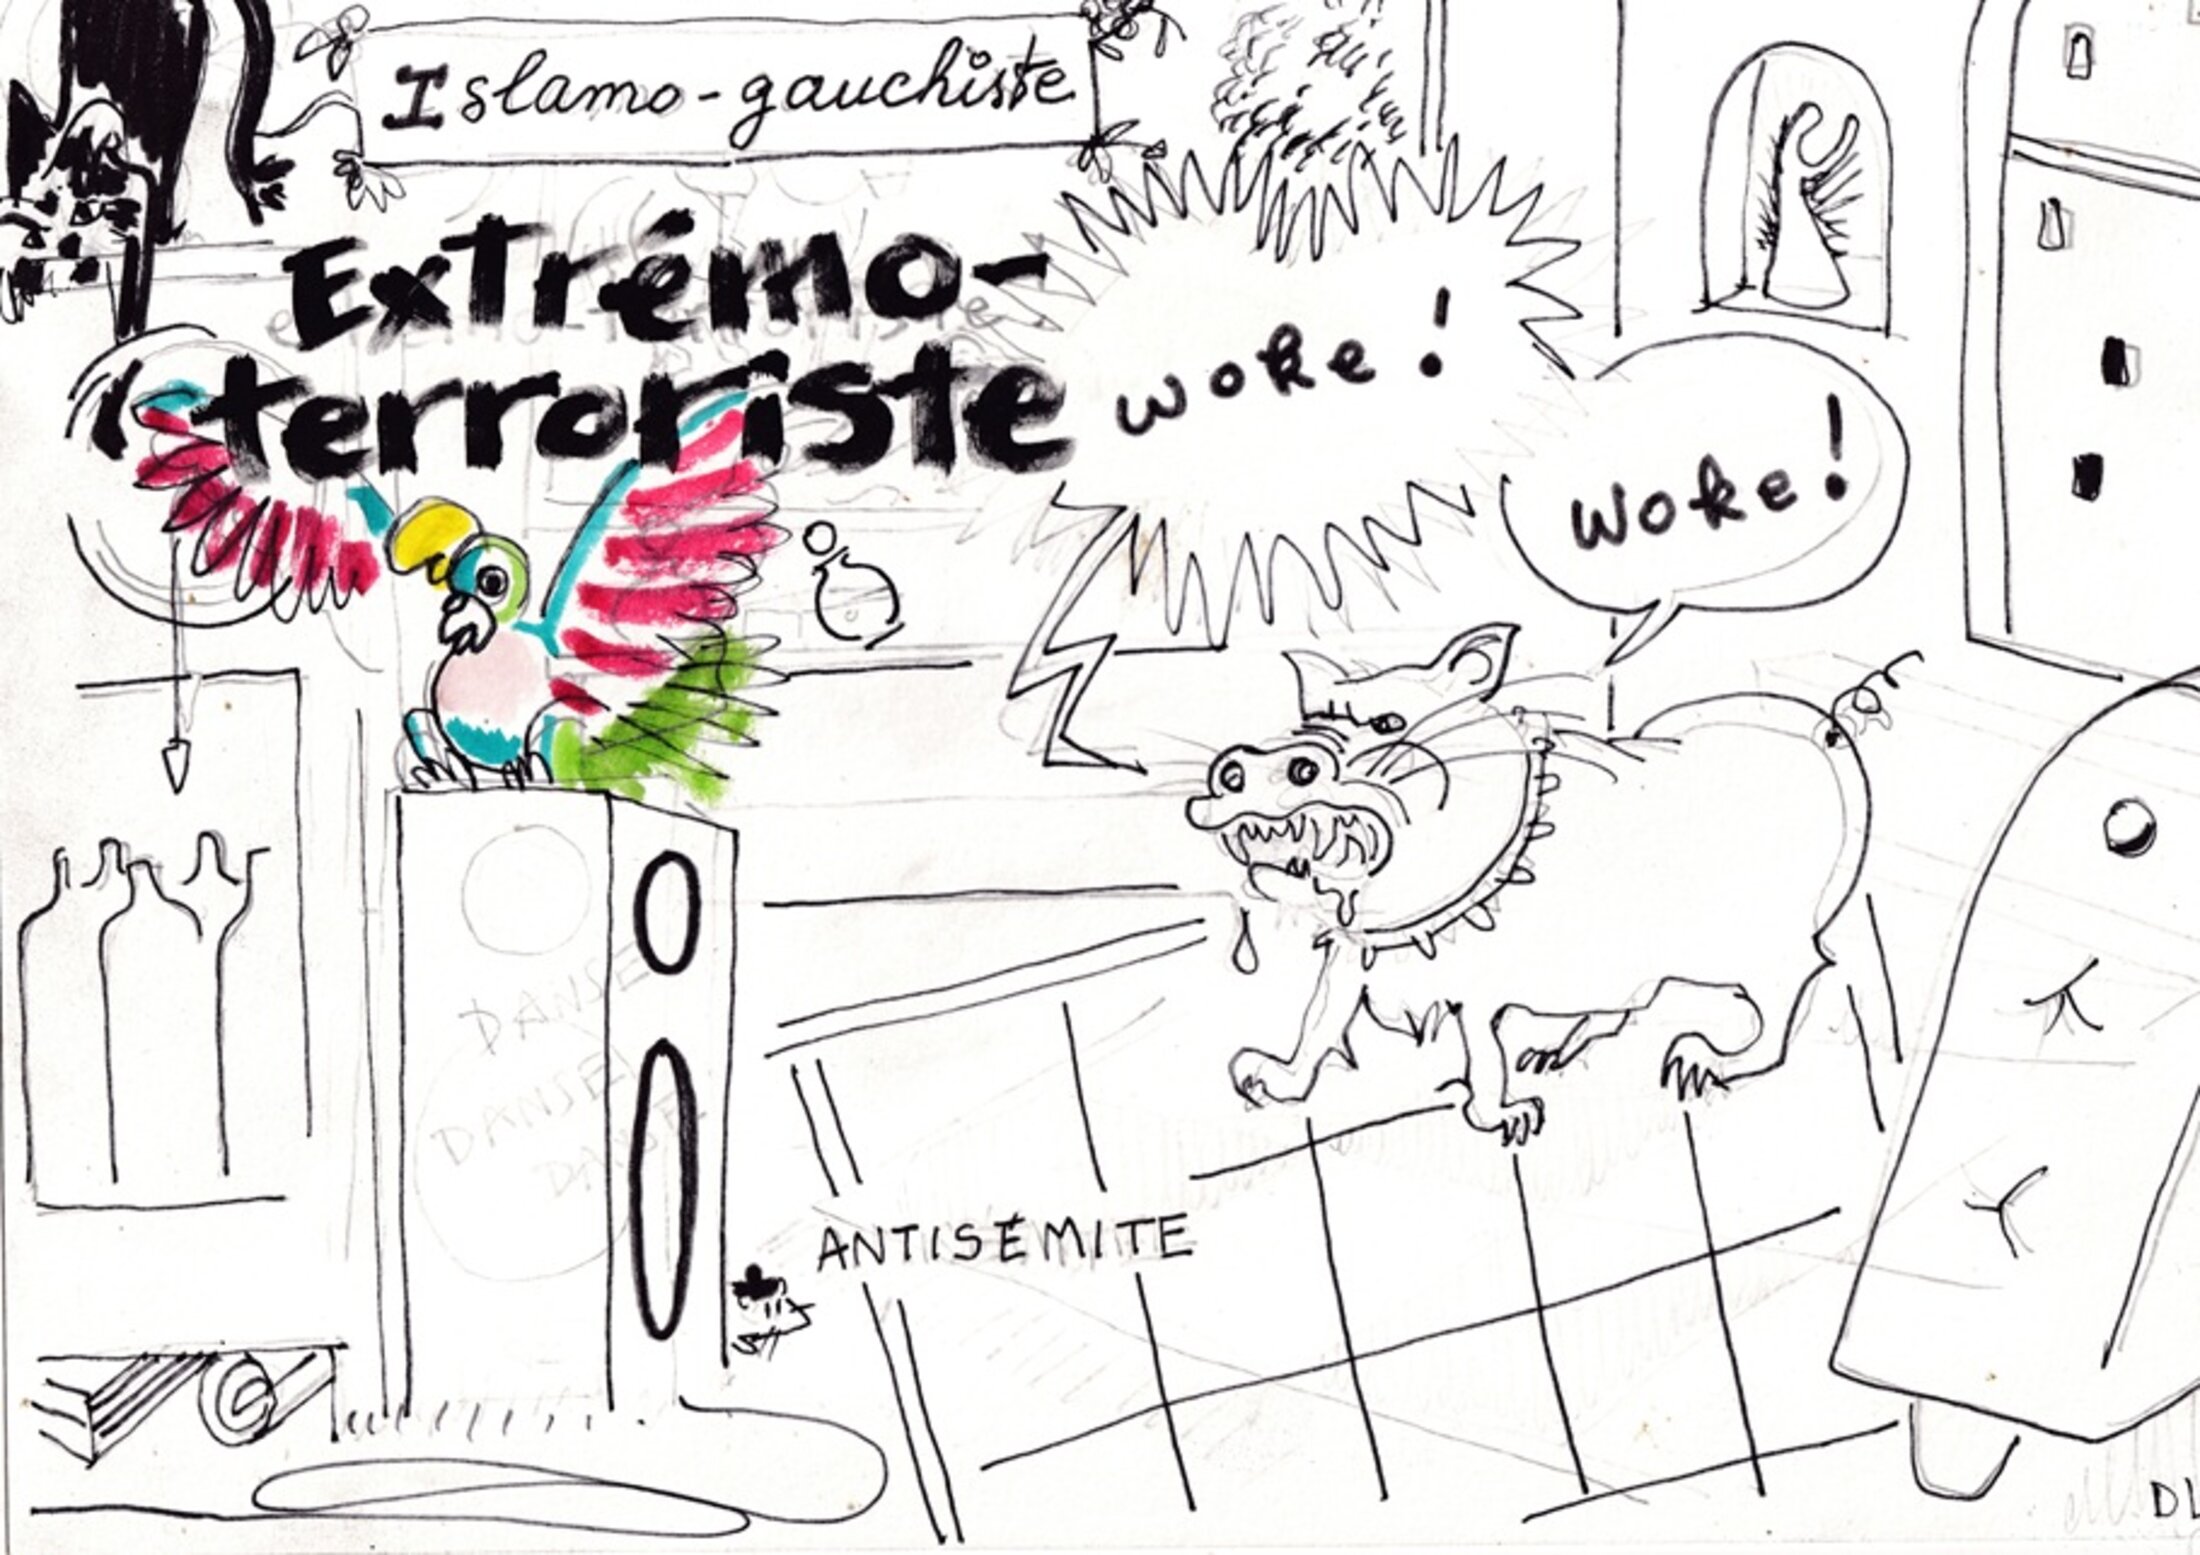 Islamo-gauchiste
Extrémo-
terroriste
woke!
Woke!
DANSE
DANSE
DANSE
ANTISÉMITE
DL